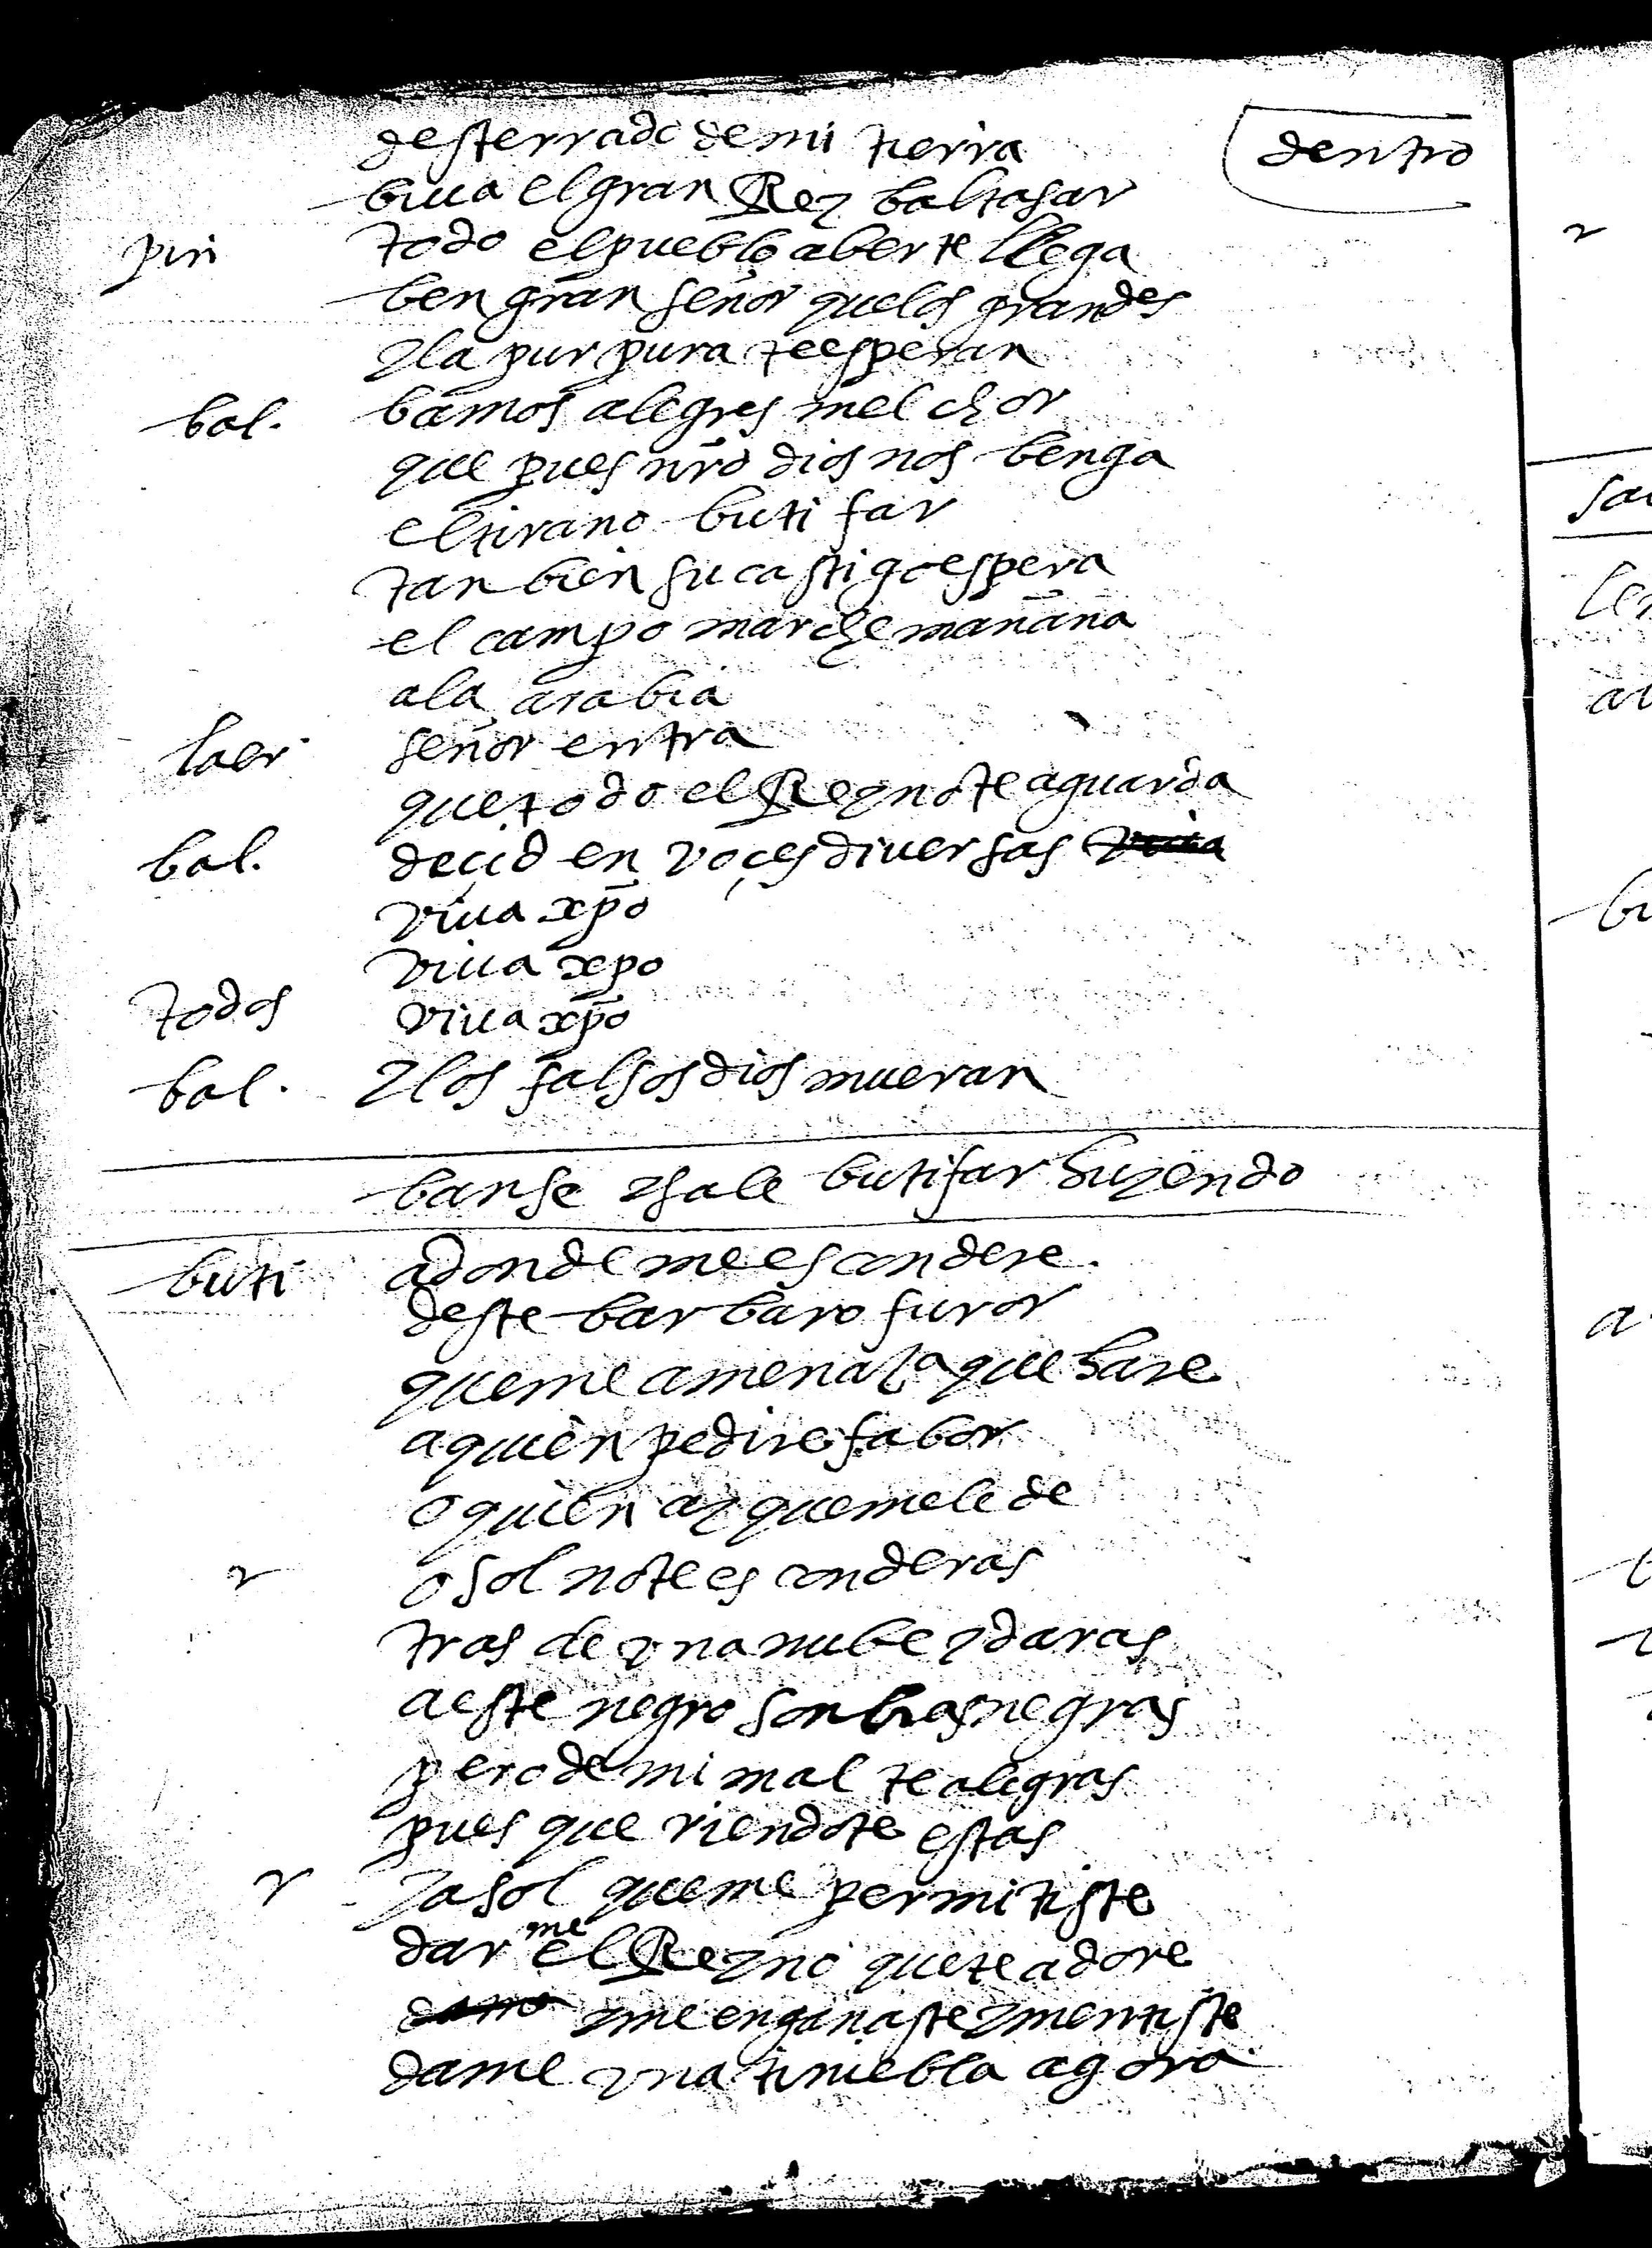 desterrado de mi tierra
dentro
biua el gran Rey baltasar
pin todo el pueblo a berte llega
ben gran señor que los grandes
y la purpura te esperan
bal. bamos alegres melchor
que pues nr̄o dios nos benga
el tirano butifar
tanbien su castigo espera
el campo marche mañana
a la arabia
laer señor entra
que todo el Reyno te aguarda
bal. deçid en voçes diuersas
viua xp̄o
viua xpo
todos viua xp̄o
bal. y los falsos dios mueran
banse y sale butifar huyendo
buti adonde me escondere
deste barbaro furor
que me amenaça que hare
a quien pedire fabor
o quien ay que me le de
o sol no te esconderas
tras de vna nube y daras
a este negro sonbras negras
pero de mi mal te alegras
pues que riendote estas
ya sol que me permitiste
darme el Reyno que te adore
y me enganaste y mentiste
dame vna tiniebla agora